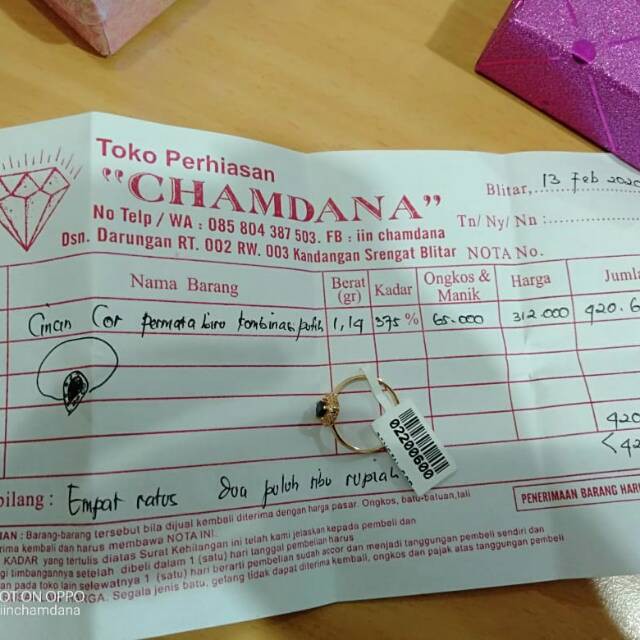 Toko Perhiasan
"CHAMDANA"
No Telp / WA : 085 804 387 503. FB : iin chamdana
Dsn. Darungan RT. 002 RW. 003 Kandangan Srengat Blitar
Blitar, 13 Feb 2020
Tn/ Ny/ Nn :
NOTA No.
Nama Barang Berat (gr) Kadar Ongkos & Manik Harga Jumla
Cincin Cor permata biru kombinasi putih 1,14 375 % 65.000 312.000 420.6
420
<42
bilang : Empat ratus dua puluh ribu rupiah
PENERIMAAN BARANG HAR
IAN : Barang-barang tersebut bila dijual kembali diterima dengan harga pasar. Ongkos, batu-batuan, tali
rima kembali dan harus membawa NOTA INI.
KADAR yang tertulis diatas Surat Kehilangan ini telah kami jelaskan kepada pembeli dan
gi timbangannya setelah dibeli dalam 1 (satu) hari tanggal pembelian harus
an pada toko lain selewatnya 1 (satu) hari berarti pembelian sudah accord dan menjadi tanggungan pembeli sendiri dan
RGA. Segala jenis batu, gelang tidak dapat diterima kembali, ongkos dan pajak atas tanggungan pembeli
02200600
OT ON OPPO
iinchamdana